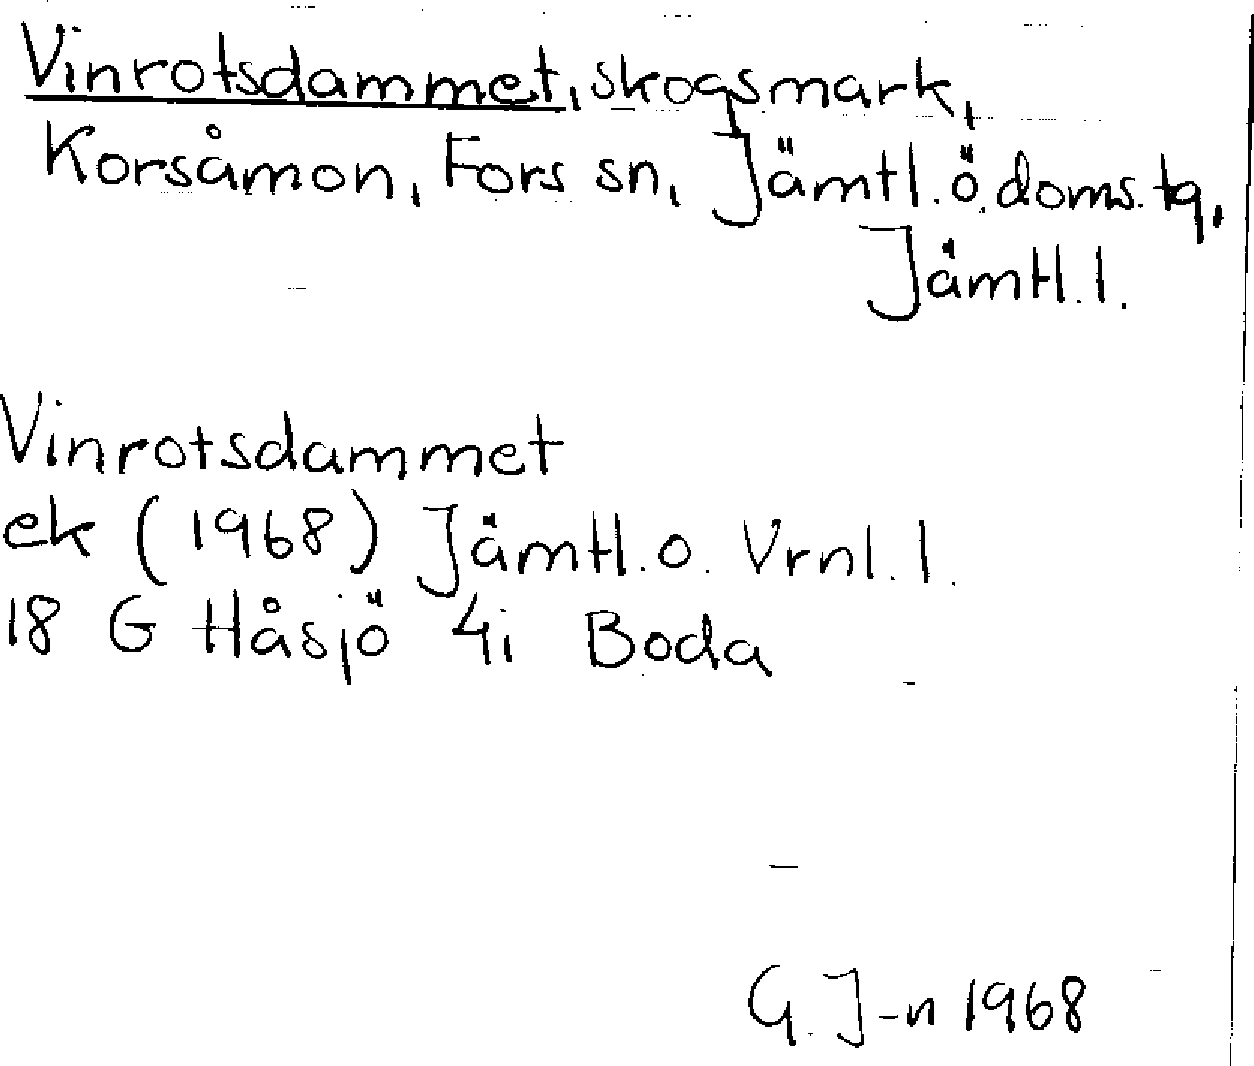 Vinrotsdammet, skogsmark,
Korsåmon, Fors sn, Jämtl. ö. doms. tg,
Jämtl. l.
Vinrotsdammet
ek (1968) Jämtl. o. Vrnl. l.
18 G Håsjö 4i Boda
G. J-n 1968